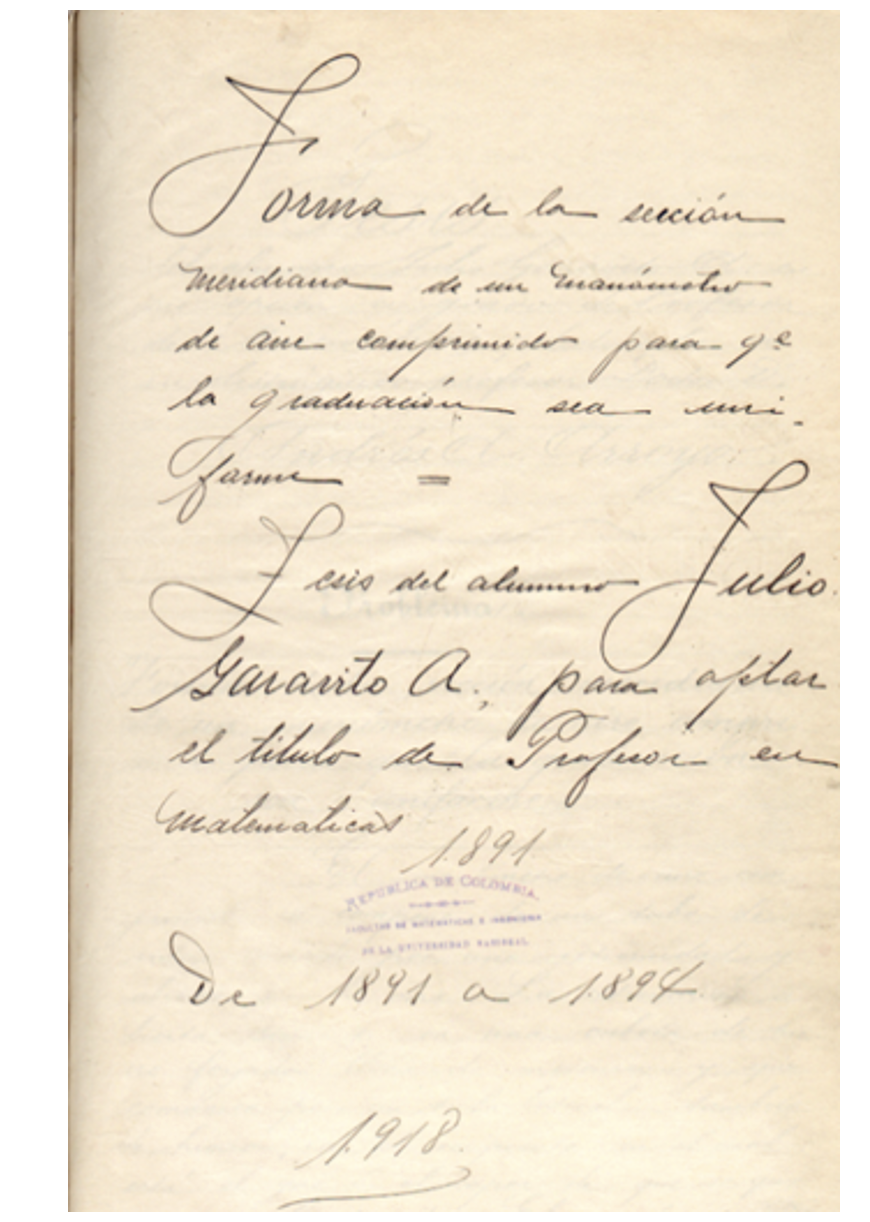 Forma de la sección
meridiana de un manómetro
de aire comprimido para qe
la graduación sea uni-
forme =
Tesis del alumno Julio
Garavito A., para optar
el titulo de Profesor en
matematicas
1891
REPUBLICA DE COLOMBIA
FACULTAD DE MATEMATICAS E INGENIERIA
DE LA UNIVERSIDAD NACIONAL
De 1891 a 1894
1918.